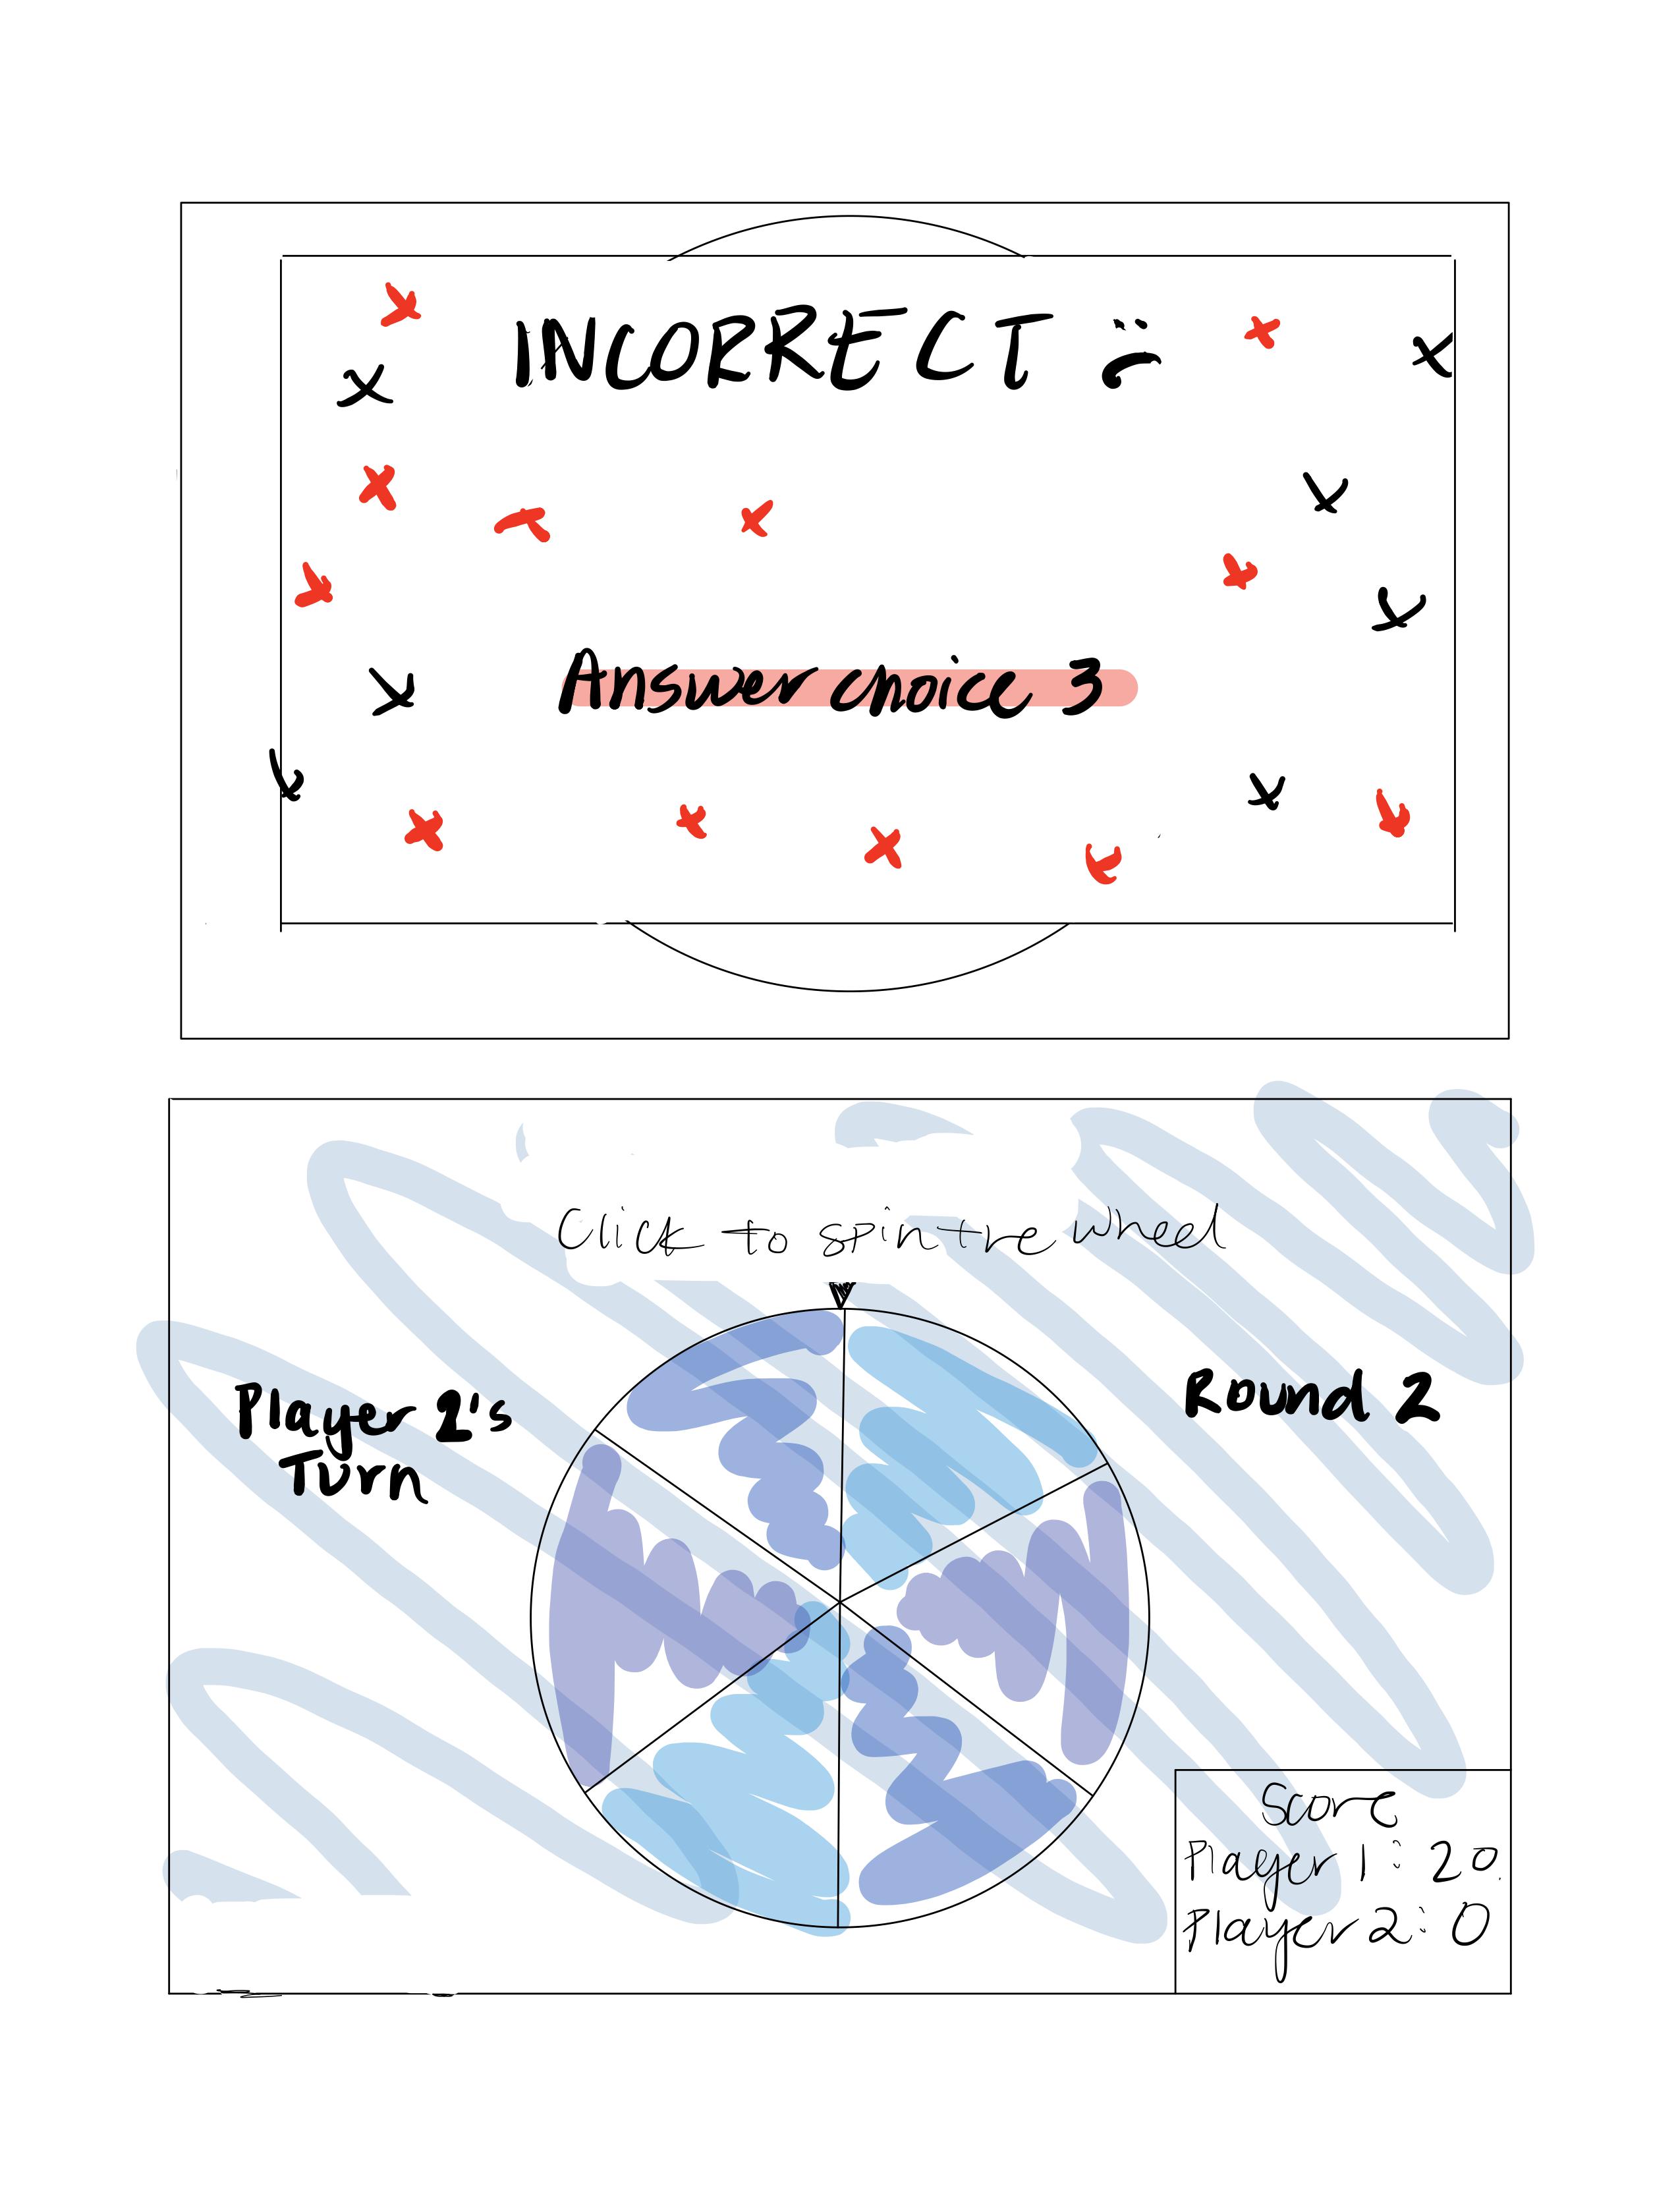 INCORRECT :(
Answer choice 3
Click to spin the wheel
Player 2's
Turn
Round 2
Score
Player 1: 20
Player 2: 0